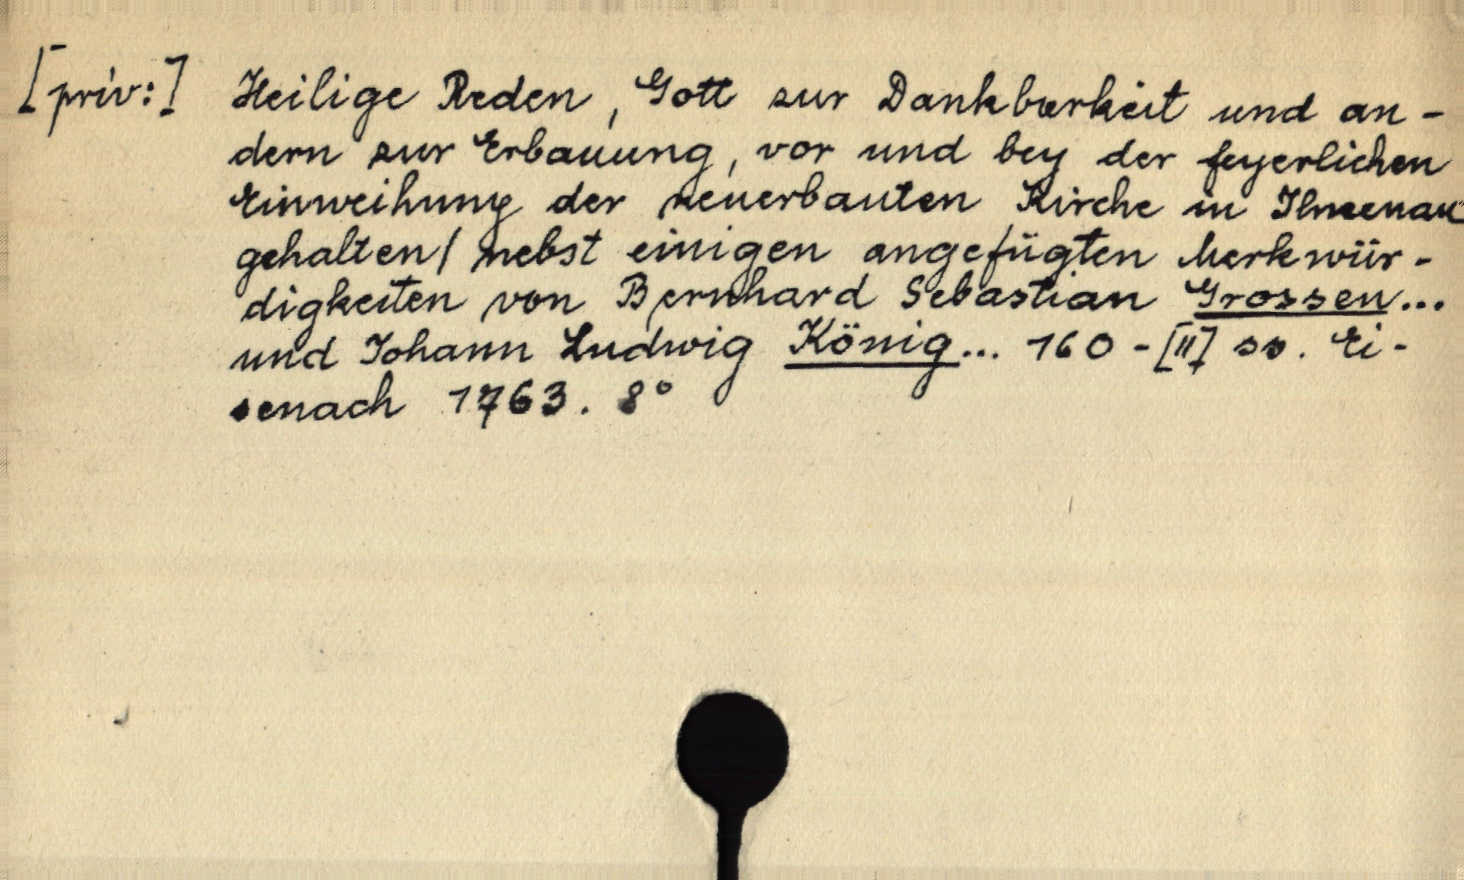 [priv:] Heilige Reden, Gott zur Dankbarkeit und an-
dern zur Erbauung, vor und bey der feyerlichen
Einweihung der neuerbauten Kirche in Ilmenau
gehalten / nebst einigen angefügten Merkwür-
digkeiten von Bernhard Sebastian Grossen...
und Johann Ludwig König... 160-[II] ss. Ei-
senach 1763. 8°